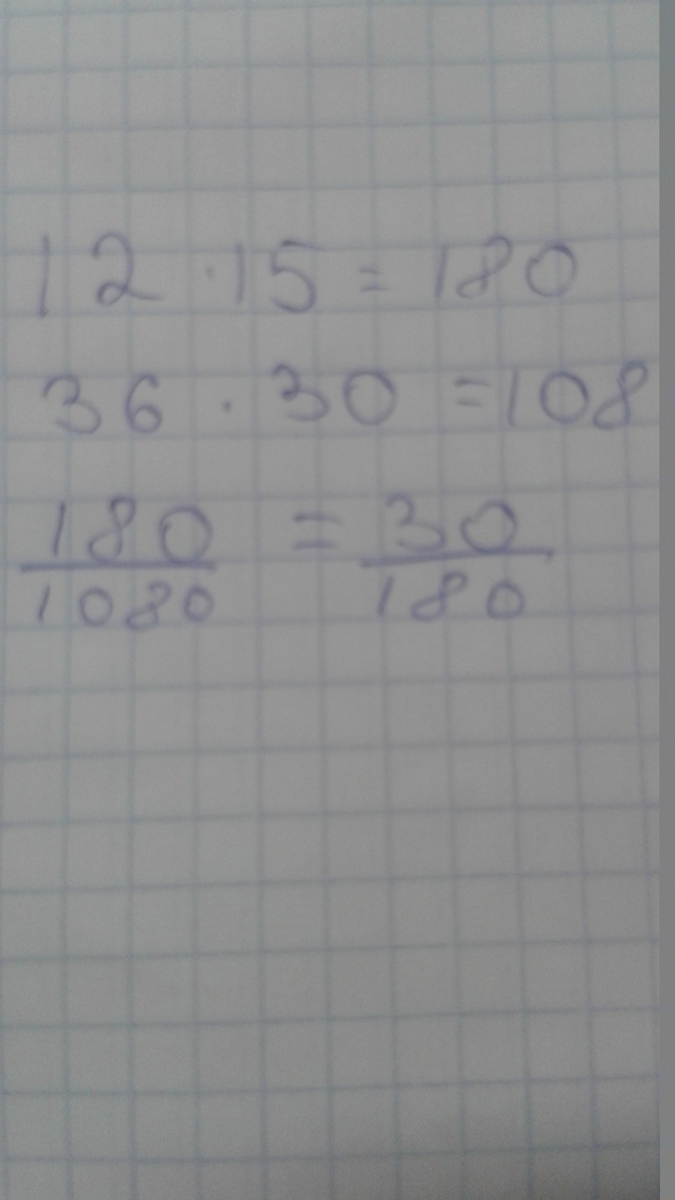 12 · 15 = 180
36 · 30 = 108
180/1080 = 30/180